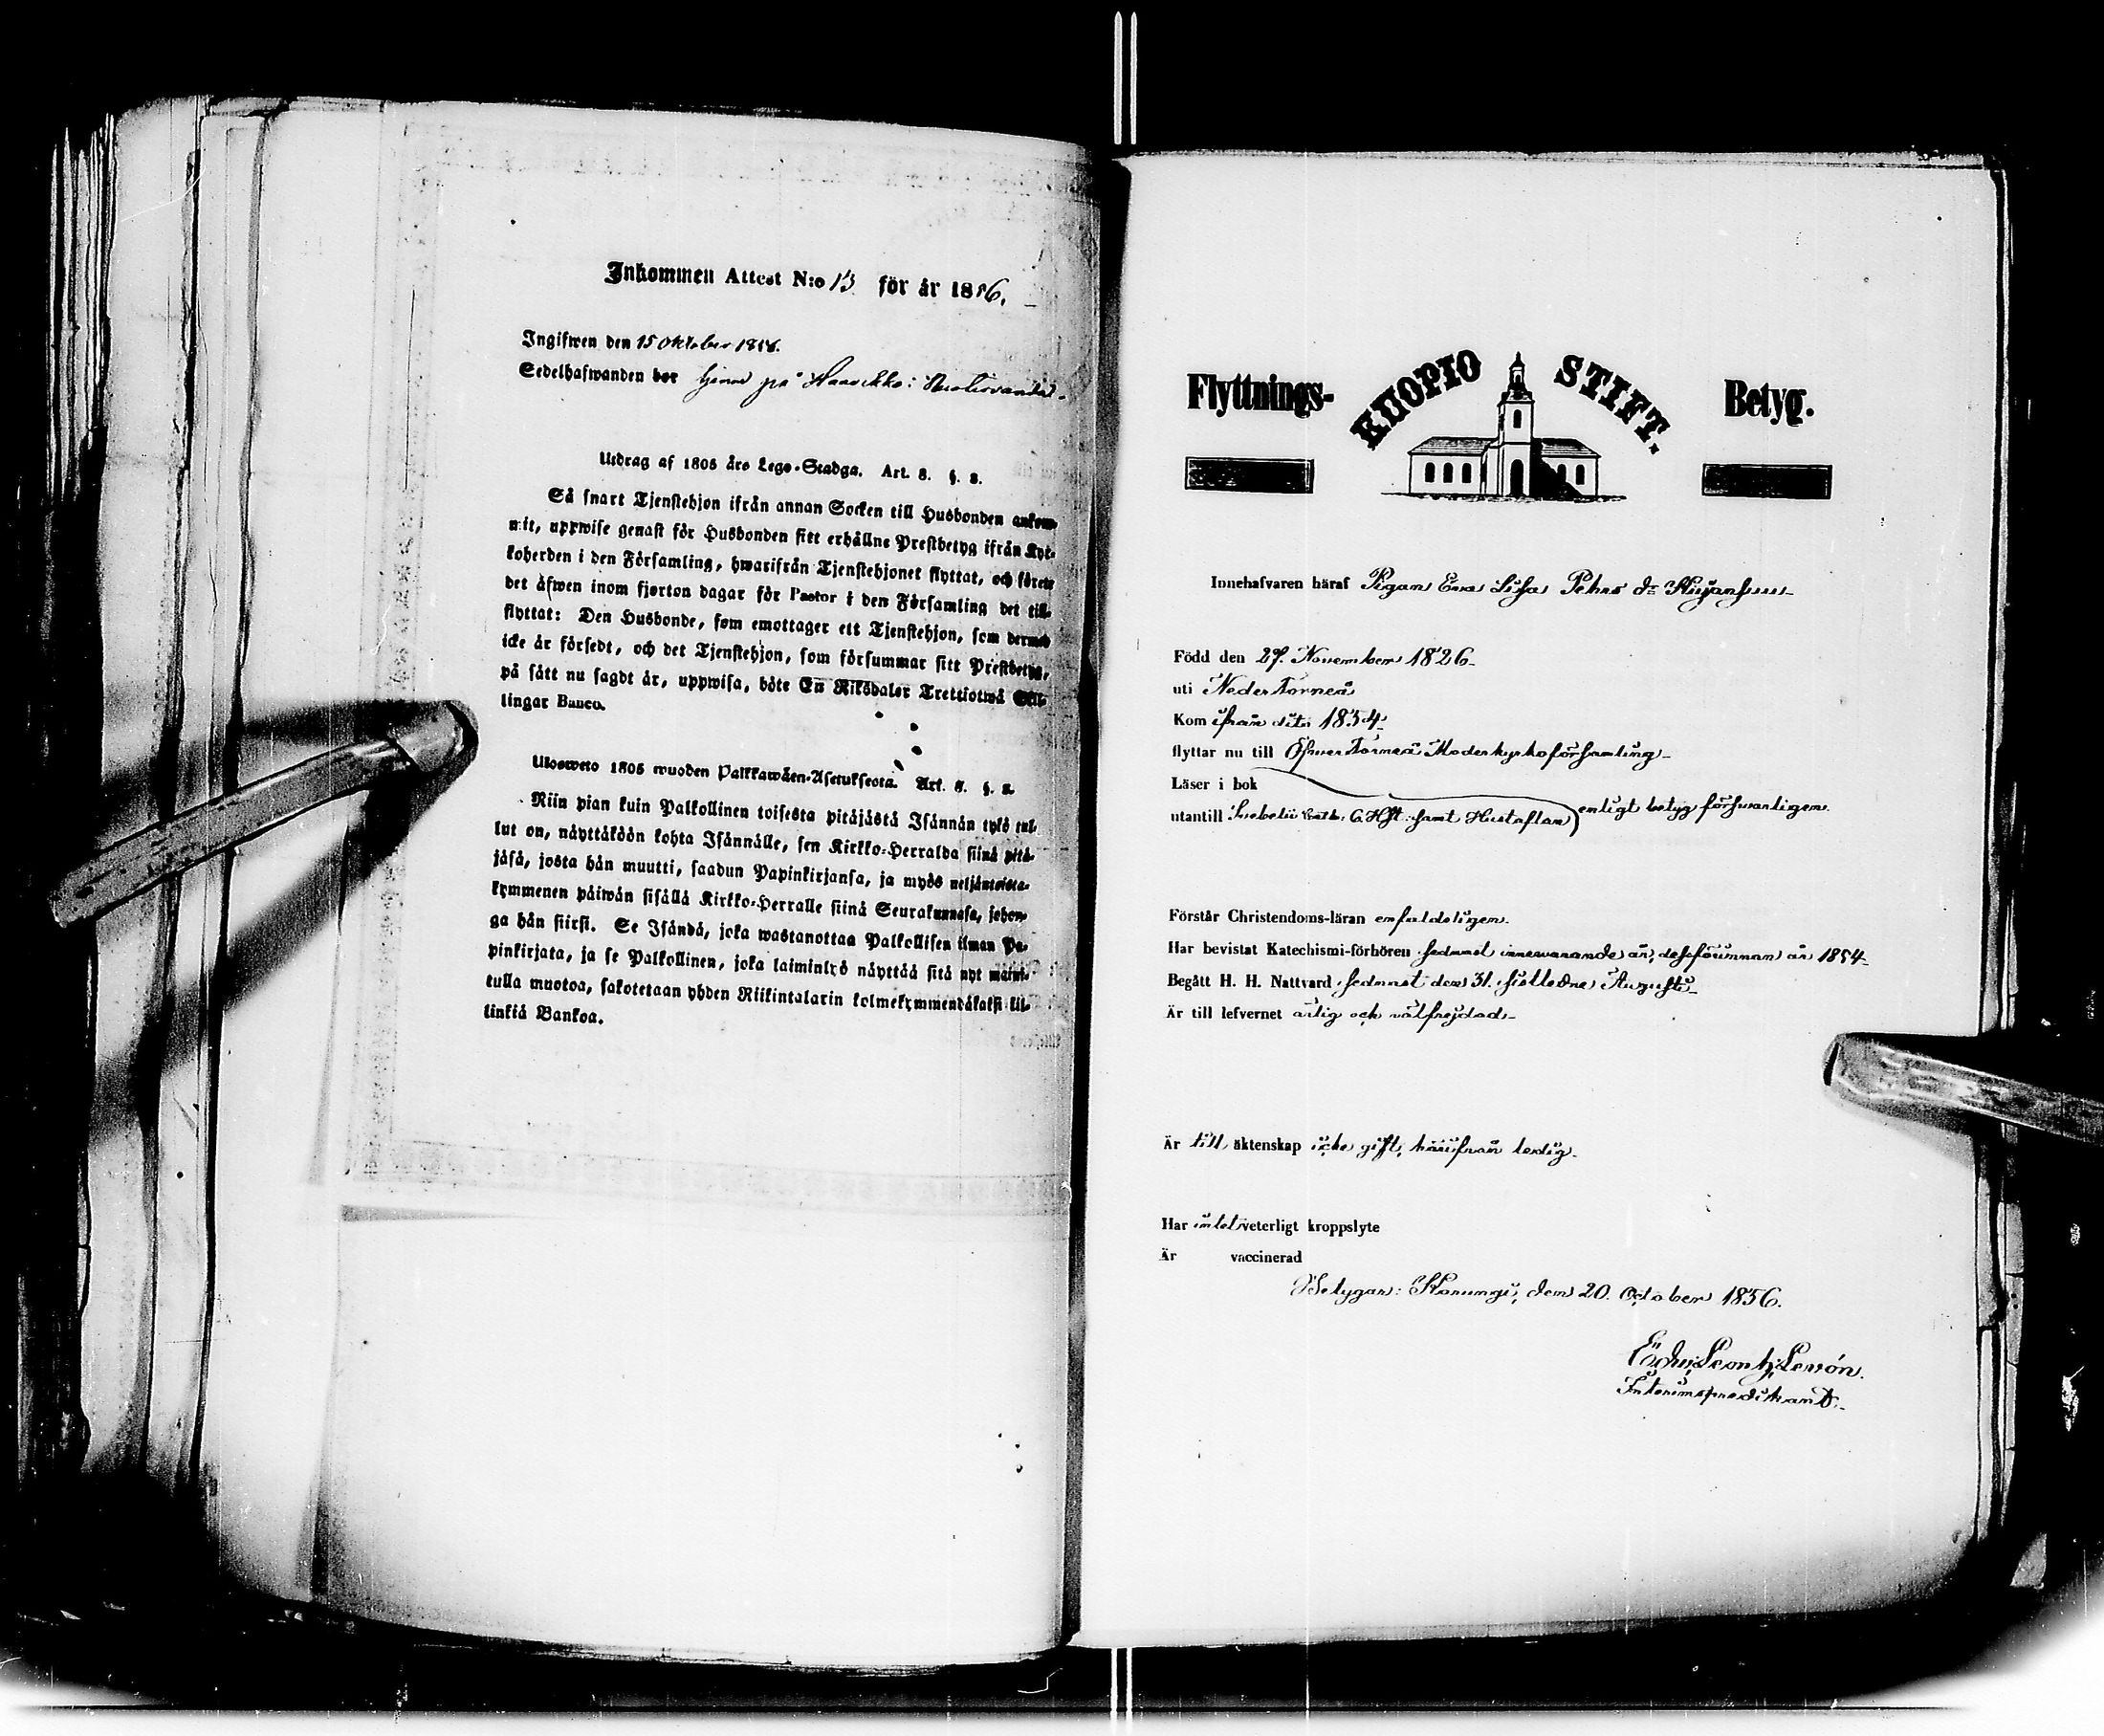 Inkommen Attest N:o 13 för år 1856.
Ingifwen den 15 oktober 1856.
Sedelhafwanden bor hemma på
Utdrag af 1805 års Lego-Stadga. Art. 8. §. 2.
Så snart Tjenstehjon ifrån annan Socken till Husbonden ankom-
mit, uppwise genast för Husbonden sitt erhållne Prestbetyg ifrån Kyr-
koherden i den Församling, hwarifrån Tjenstehjonet flyttat, och förete
det äfwen inom fjorton dagar för Pastor i den Församling det till-
flyttat: Den Husbonde, som emottager ett Tjenstehjon, som dermed
icke är försedt, och det Tjenstehjon, som försummar sitt Prestbetyg,
på sätt nu sagdt är, uppwisa, böte En Riksdaler Trettiotwå Skil-
lingar Banco.
Ulosweto 1805 wuoden Palkkawäen-Asetuksesta. Art. 8. §. 2.
Niin pian kuin Palkollinen toisesta pitäjästä Isännän tykö tul-
lut on, näyttäköön kohta Isännälle, sen Kirkko-Herralda siinä pitä-
jäsä, josta hän muutti, saadun Papinkirjansa, ja myös neljäntoista-
kymmenen päiwän sisällä Kirkko-Herralle siinä Seurakunnasa, johon-
ga hän siirsi. Se Isändä, joka wastanottaa Palkollisen ilman Pa-
pinkirjata, ja se Palkollinen, joka laiminlyö näyttää sitä nyt maini-
tulla muotoa, sakotetaan yhden Riikintalarin kolmekymmendäkaksi kil-
linkiä Bankoa.
Flyttnings- KUOPIO STIFT. Betyg.
Innehafvaren häraf Pigan Eva Lisa Pehrs dr
Född den 27. November 1826.
uti Neder Torneå
Kom ifrån dito 1854.
flyttar nu till Öfver Torneå Moderkyrkoförsamling.
Läser i bok
utantill Svebelii Cath. 6 Hft samt Hustaflan enligt betyg försvarligen.
Förstår Christendoms-läran enfaldeligen.
Har bevistat Katechismi-förhören sednast innevarande år, dessförinnan år 1854.
Begått H. H. Nattvard sednast den 31. sistledne Augusti.
Är till lefvernet ärlig och välfrejdad.
Är till äktenskap icke gift, härifrån ledig.
Har intet veterligt kroppslyte
Är vaccinerad
Betygar: Karungi, den 20. October 1856.
Interimspredikant.